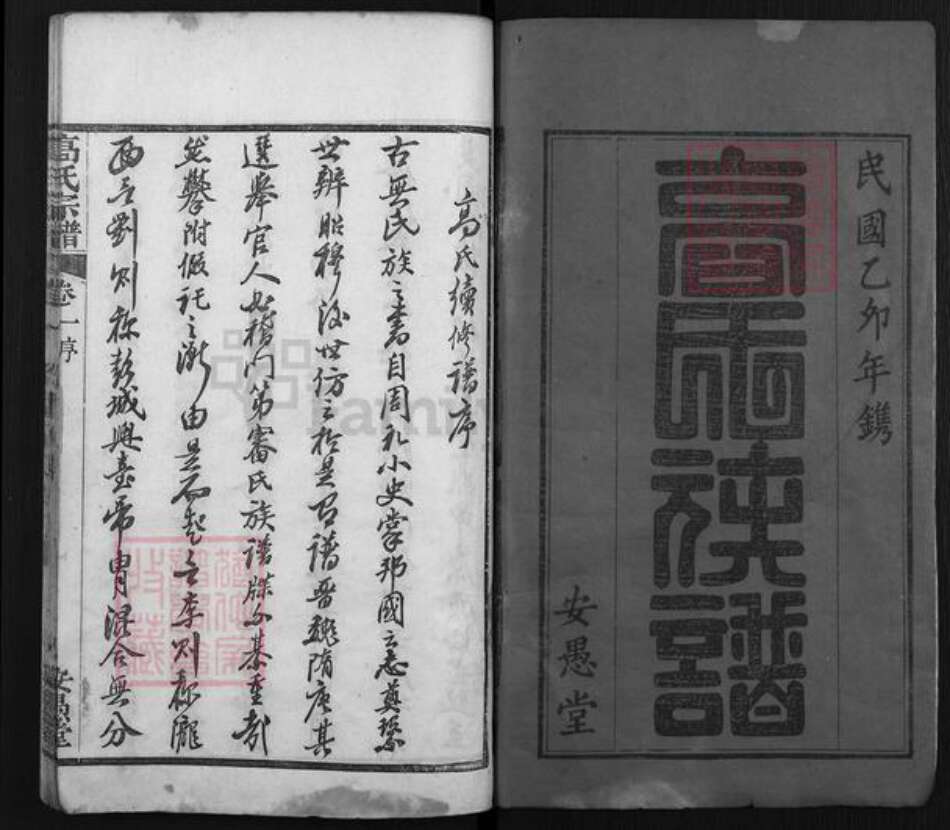 民國乙卯年鐫
高氏族譜
安愚堂
高氏續修譜序
古無氏族之書自周礼小史掌邦國之志奠繫
世辨昭穆後世仿之於是有譜晉魏隋唐其
選舉官人必稽門第審氏族譜牒不綦重哉
然攀附假託之漸由是而起言李則称隴
西言劉則称彭城輿臺帝胄混合無分
高氏宗譜
卷一序
安愚堂
Family